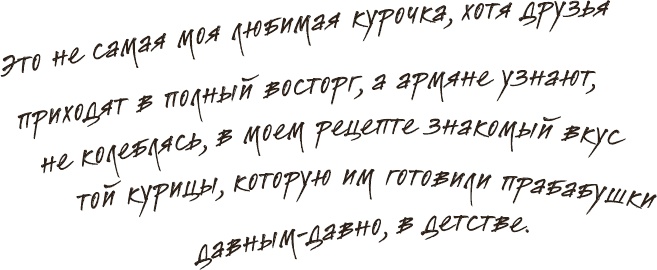 Это не самая моя любимая курочка, хотя друзья
приходят в полный восторг, а армяне узнают,
не колеблясь, в моем рецепте знакомый вкус
той курицы, которую им готовили прабабушки
давным-давно, в детстве.